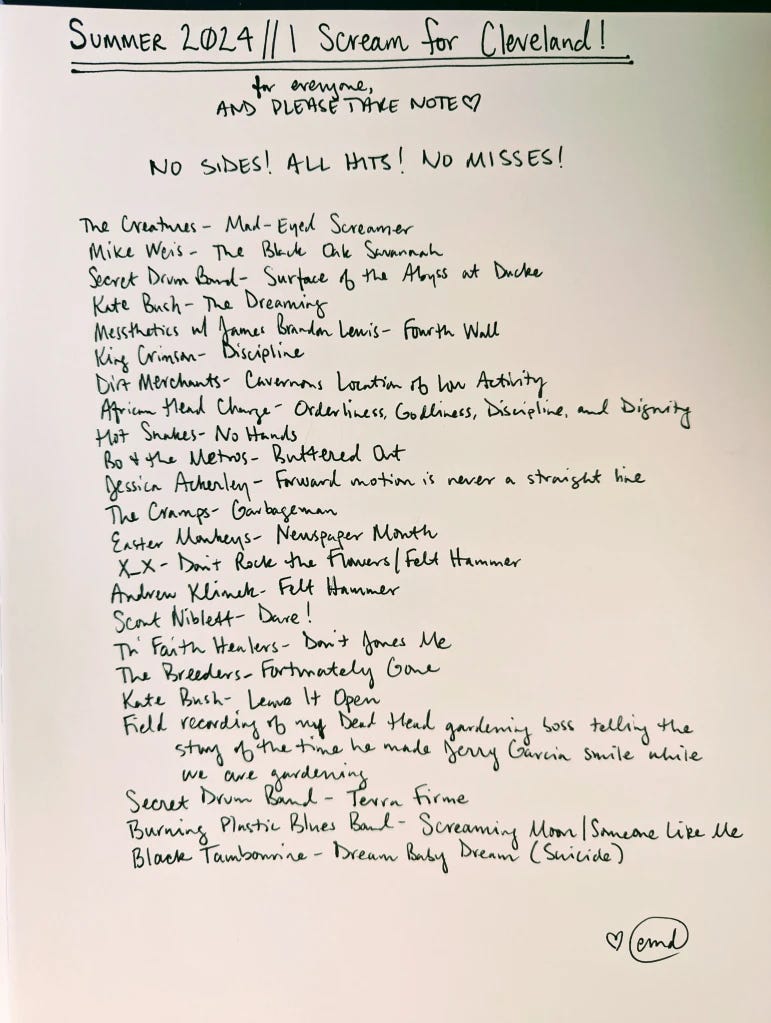 SUMMER 2024 // I Scream for Cleveland!
for everyone,
AND PLEASE TAKE NOTE♡
NO SIDES! ALL HITS! NO MISSES!
The Creatures - Mad-Eyed Screamer
Mike Weis - The Black Oak Savannah
Secret Drum Band - Surface of the Abyss at Ducke
Kate Bush - The Dreaming
Messthetics w/ James Brandon Lewis - Fourth Wall
King Crimson - Discipline
Dirt Merchants - Cavernous Location of Low Activity
African Head Charge - Orderliness, Godliness, Discipline, and Dignity
Hot Snakes - No Hands
Bo & the Metros - Buttered Out
Jessica Ackerley - Forward motion is never a straight line
The Cramps - Garbageman
Easter Monkeys - Newspaper Month
X_X - Don't Rock the Flowers/Felt Hammer
Andrew Klimek - Felt Hammer
Scout Niblett - Dare!
Th' Faith Healers - Don't Jones Me
The Breeders - Fortunately Gone
Kate Bush - Leave It Open
Field recording of my Dead Head gardening boss telling the
story of the time he made Jerry Garcia smile while
we are gardening
Secret Drum Band - Terra Firme
Burning Plastic Blues Band - Screaming Moon/Someone Like Me
Black Tambourine - Dream Baby Dream (Suicide)
♡ emd